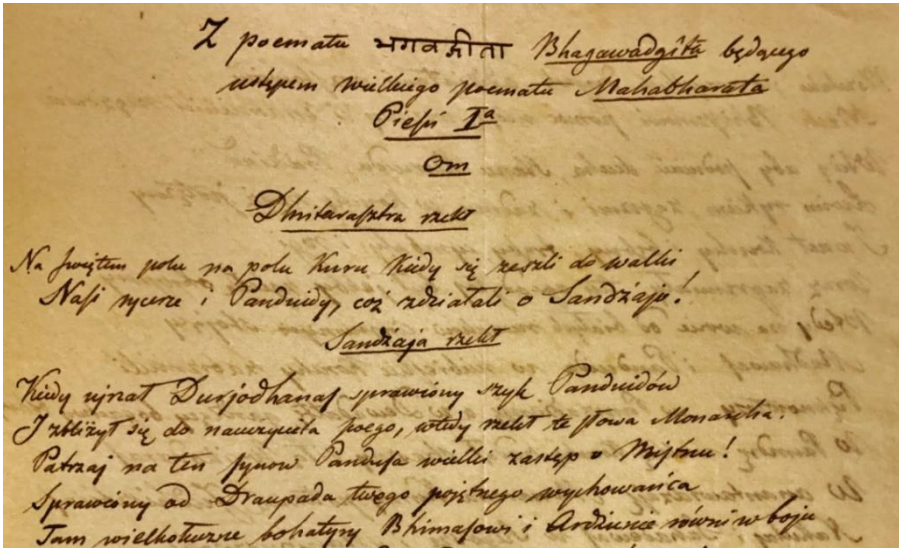 Z poematu भगवद्गीता Bhagawadgîta będącego
ustępem wielkiego poematu Mahabharata
Pieśń Iª
Om
Dhritarasztra rzekł
Na świętem polu na polu Kuru kiedy się zeszli do walki
Nasi rycerze i Panduidy, cóż zdziałali o Sandżajo!
Sandżaja rzekł
Kiedy ujrzał Durjodhanas sprawiony szyk Panduidów
I zbliżył się do nauczyciela swego, wtedy rzekł te słowa Monarcha:
Patrzaj na ten synów Pandusa wielki zastęp o Mistrzu!
Sprawiony od Draupada twego pojętnego wychowańca
Tam wielkołuczne bohatyry Bhimasowi i Ardżunie równi w boju